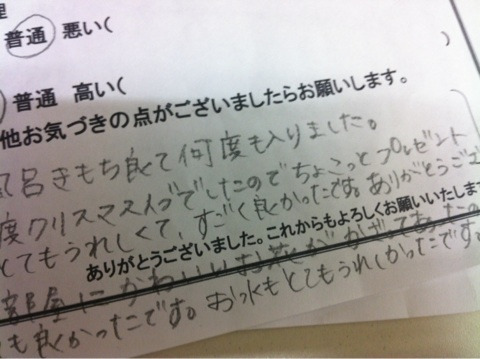 理
普通 悪い( )
普通 高い(
他お気づきの点がございましたらお願いします。
風呂きもち良くて何度も入りました。
度クリスマスイヴでしたのでちょこっとプレゼント
とてもうれしくて、すごく良かったです。ありがとうござ
ありがとうございました。これからもよろしくお願いいたします
部屋にかわいいお花がかざってあったの
も良かったです。お水もとてもうれしかったです。